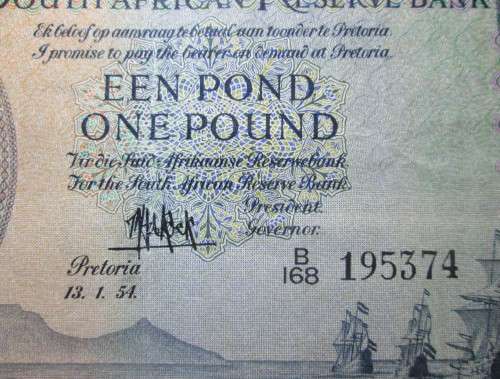 SOUTH AFRICAN RESERVE BANK
Ek beloof op aanvraag te betaal aan toonder te Pretoria.
I promise to pay the bearer on demand at Pretoria.
EEN POND
ONE POUND
Vir die Suid-Afrikaanse Reserwebank.
For the South African Reserve Bank.
President.
Governor.
Pretoria
13. 1. 54.
B
168 195374